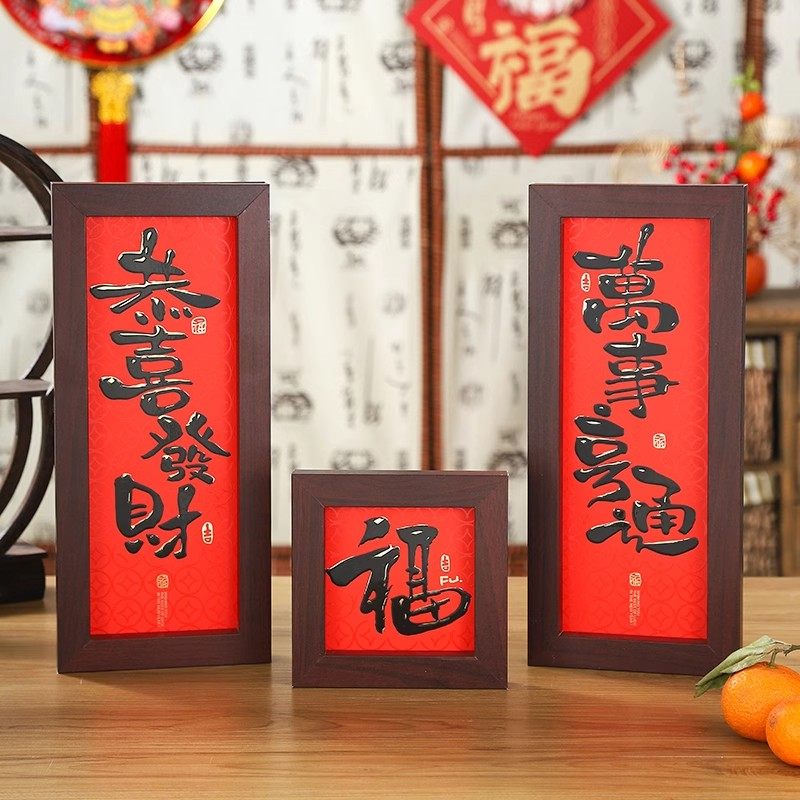 福
恭喜發財
萬事亨通
福
Fu.